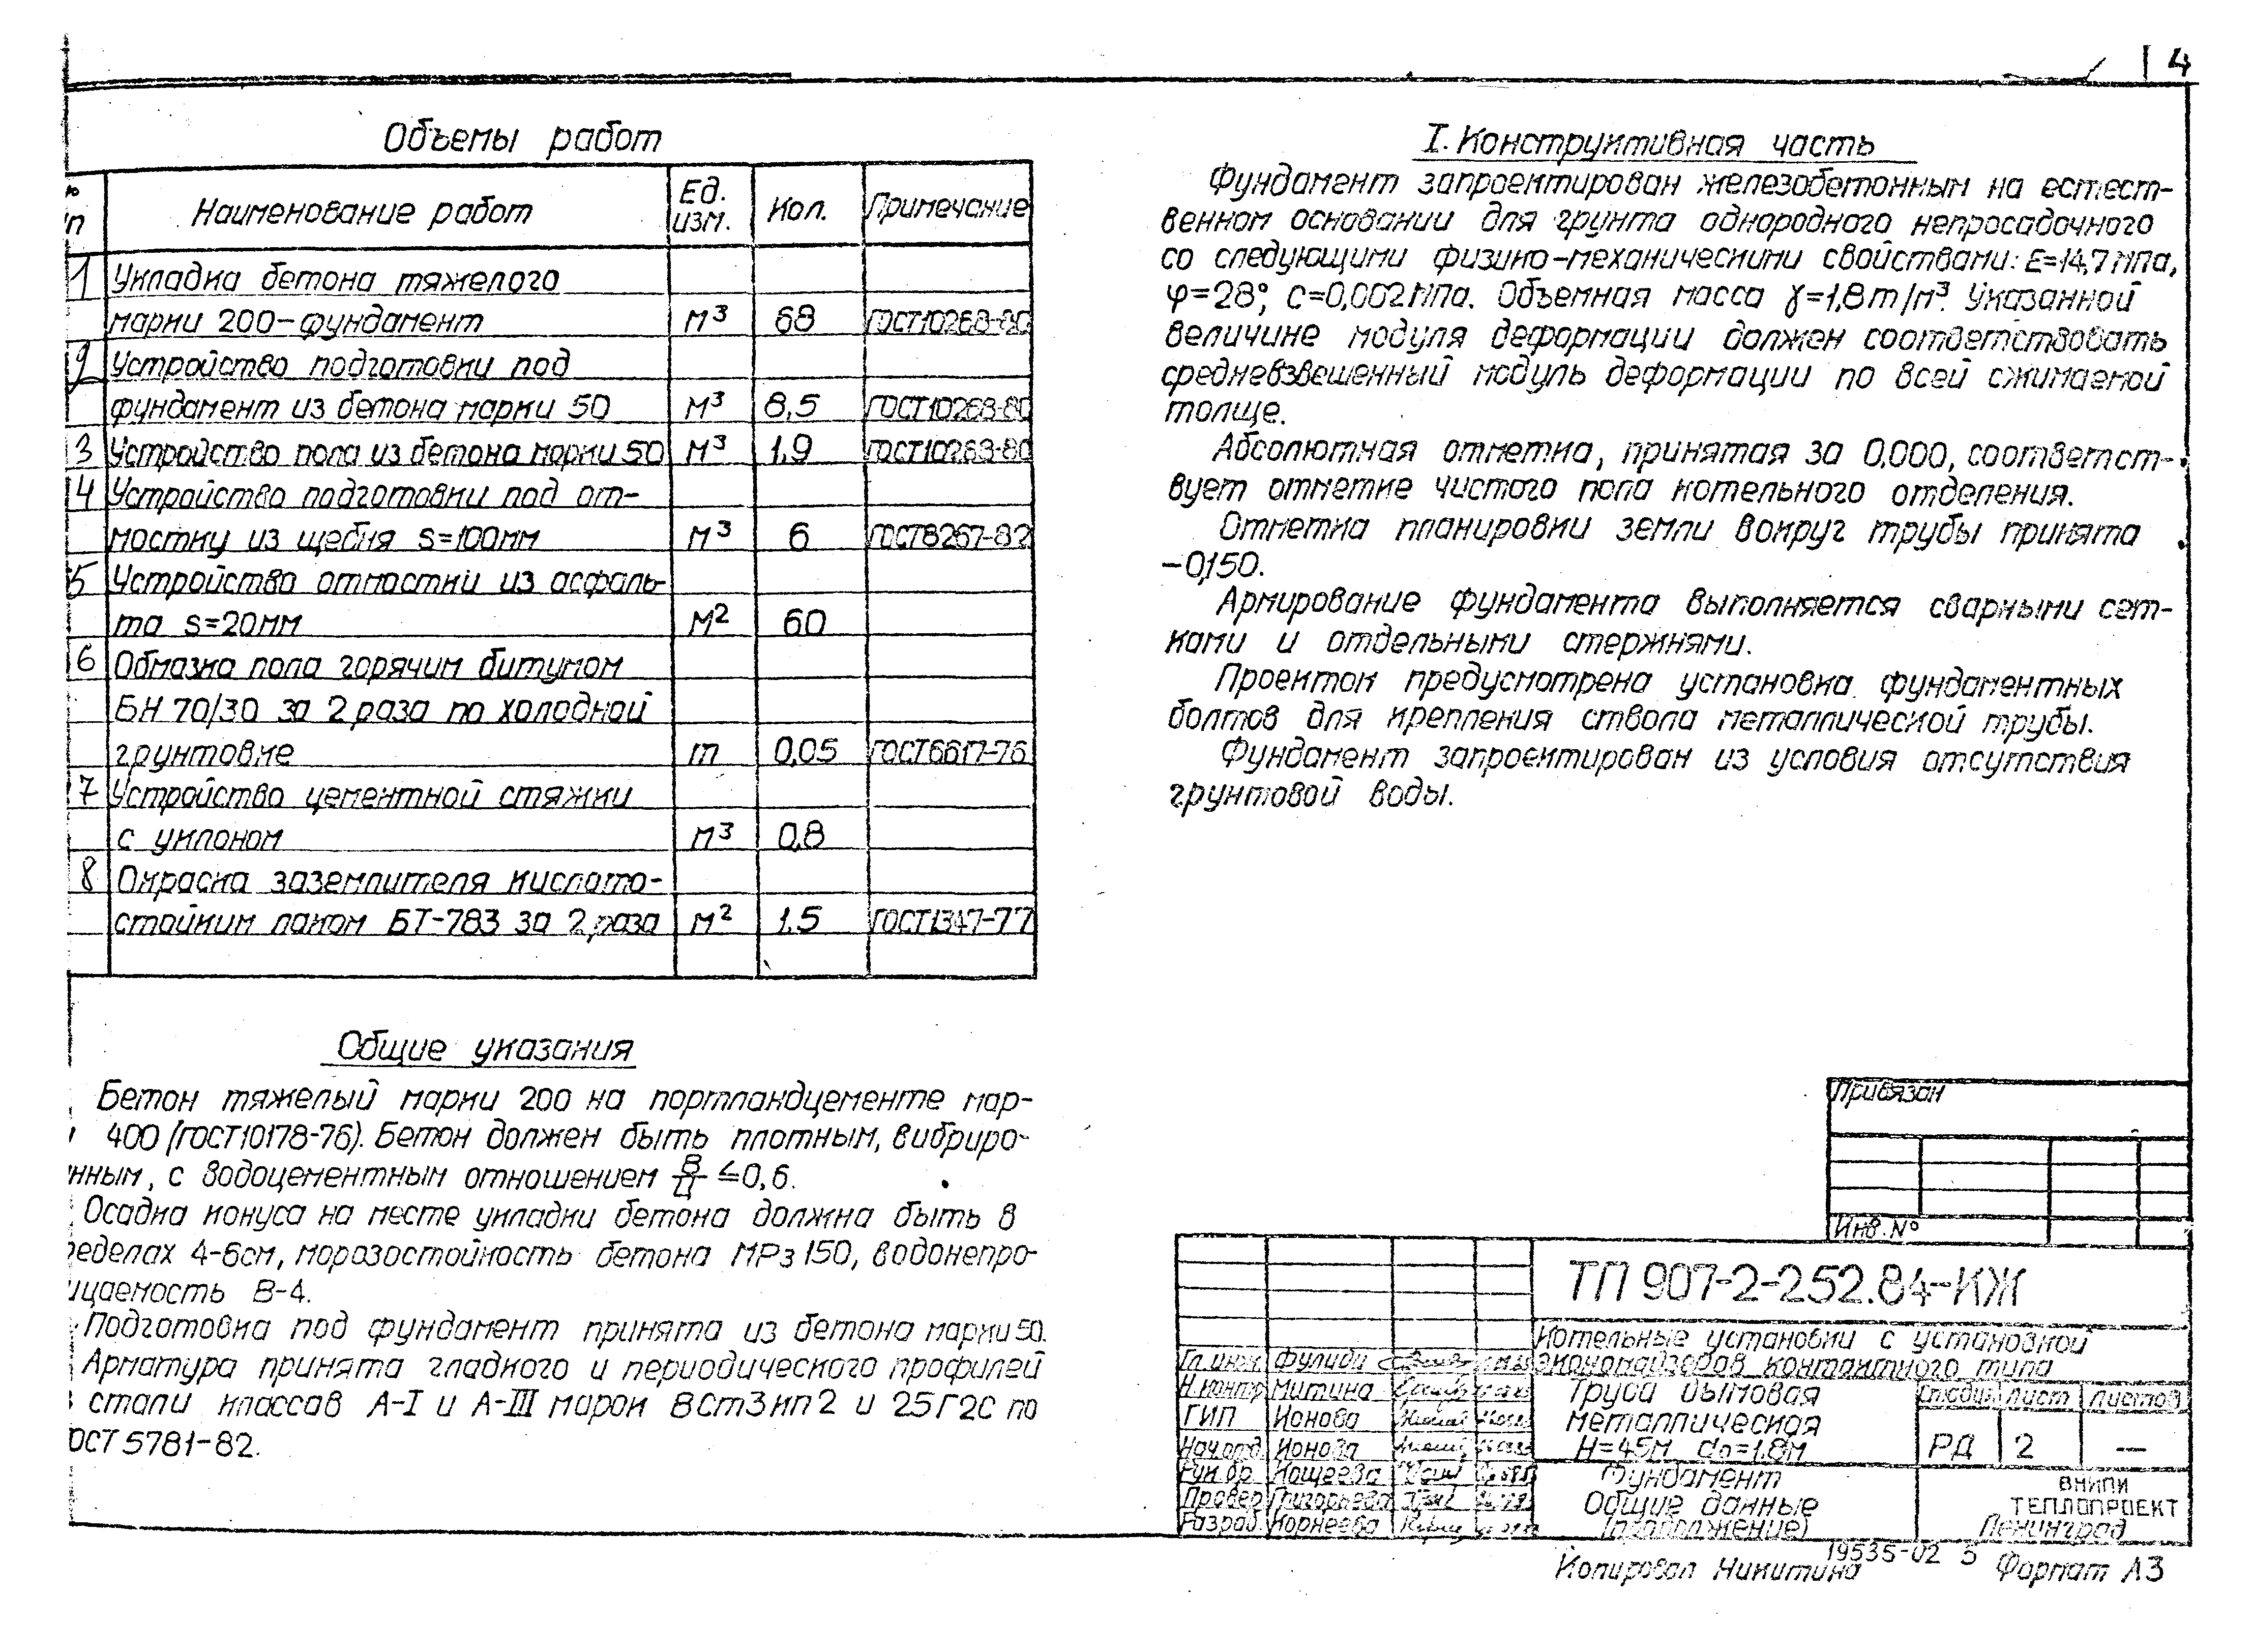 4
Объемы работ
п
Наименование работ
Ед. изм.
Кол.
Примечание
1 Укладка бетона тяжелого
марки 200-фундамент м³ 68 ГОСТ10268-80
2 Устройство подготовки под
фундамент из бетона марки 50 м³ 8,5 ГОСТ10268-80
3 Устройство пола из бетона марки 50 м³ 1,9 ГОСТ10268-80
4 Устройство подготовки под от-
мостку из щебня s=100мм м³ 6 ГОСТ8267-82
5 Устройство отмостки из асфаль-
та s=20мм м² 60
6 Обмазка пола горячим битумом
БН 70/30 за 2 раза по холодной
грунтовке т 0,05 ГОСТ6617-76
7 Устройство цементной стяжки
с уклоном м³ 0,8
8 Окраска заземлителя кислото-
стойким лаком БТ-783 за 2 раза м² 1,5 ГОСТ1347-77
Общие указания
Бетон тяжелый марки 200 на портландцементе мар-
400 (ГОСТ10178-76). Бетон должен быть плотным, вибриро-
нным, с водоцементным отношением В/Ц ≤0,6.
Осадка конуса на месте укладки бетона должна быть в
ределах 4-6см, морозостойкость бетона МРз 150, водонепро-
ицаемость В-4.
Подготовка под фундамент принята из бетона марки 50.
Арматура принята гладкого и периодического профилей
з стали классов А-I и А-III марок ВСт3кп2 и 25Г2С по
ОСТ 5781-82.
I. Конструктивная часть
Фундамент запроектирован железобетонным на естест-
венном основании для грунта однородного непросадочного
со следующими физико-механическими свойствами: E=14,7 мпа,
φ=28°, с=0,002 МПа. Объемная масса γ=1,8т/м³. Указанной
величине модуля деформации должен соответствовать
средневзвешенный модуль деформации по всей сжимаемой
толще.
Абсолютная отметка, принятая за 0,000, соответст-
вует отметке чистого пола котельного отделения.
Отметка планировки земли вокруг трубы принята
-0,150.
Армирование фундамента выполняется сварными сет-
ками и отдельными стержнями.
Проектом предусмотрена установка фундаментных
болтов для крепления ствола металлической трубы.
Фундамент запроектирован из условия отсутствия
грунтовой воды.
Привязан
Инв. №
ТП 907-2-252.84-КЖ
Котельные установки с установкой
экономайзеров контактного типа
Гл. инж.
Н.контр Митина
ГИП Ионова
Нач.отд. Ионова
Рук.бр. Кощеева
Провер Григорьева
Разраб. Корнеева
Труба дымовая
металлическая
Н=45м d₀=1,8м
Стадия Лист Листов
РД 2 —
Фундамент
Общие данные
(продолжение)
ВНИПИ
ТЕПЛОПРОЕКТ
Ленинград
19535-02 5
Копировал Никитина
Формат А3